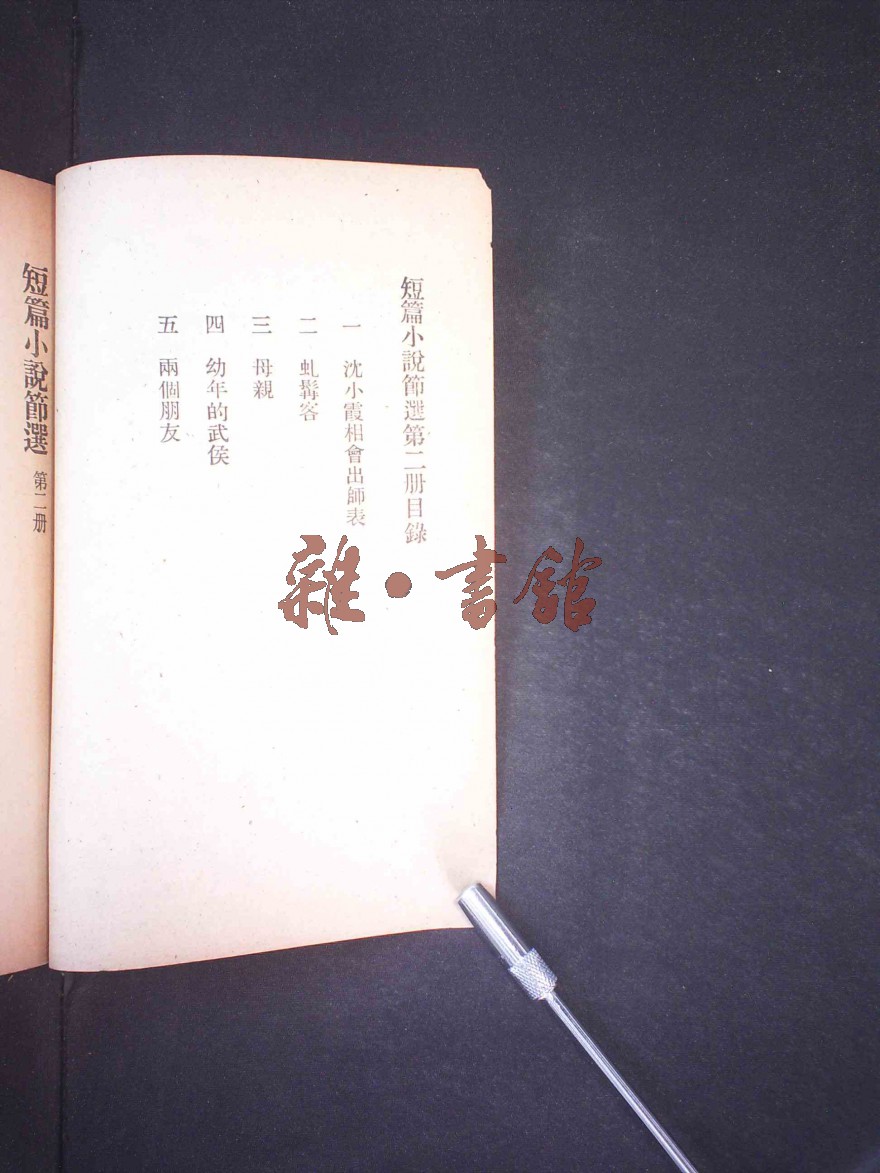 短篇小說節選第二册目錄
一 沈小霞相會出師表
二 虬髯客
三 母親
四 幼年的武侯
五 兩個朋友
短篇小說節選 第二册
雜•書館